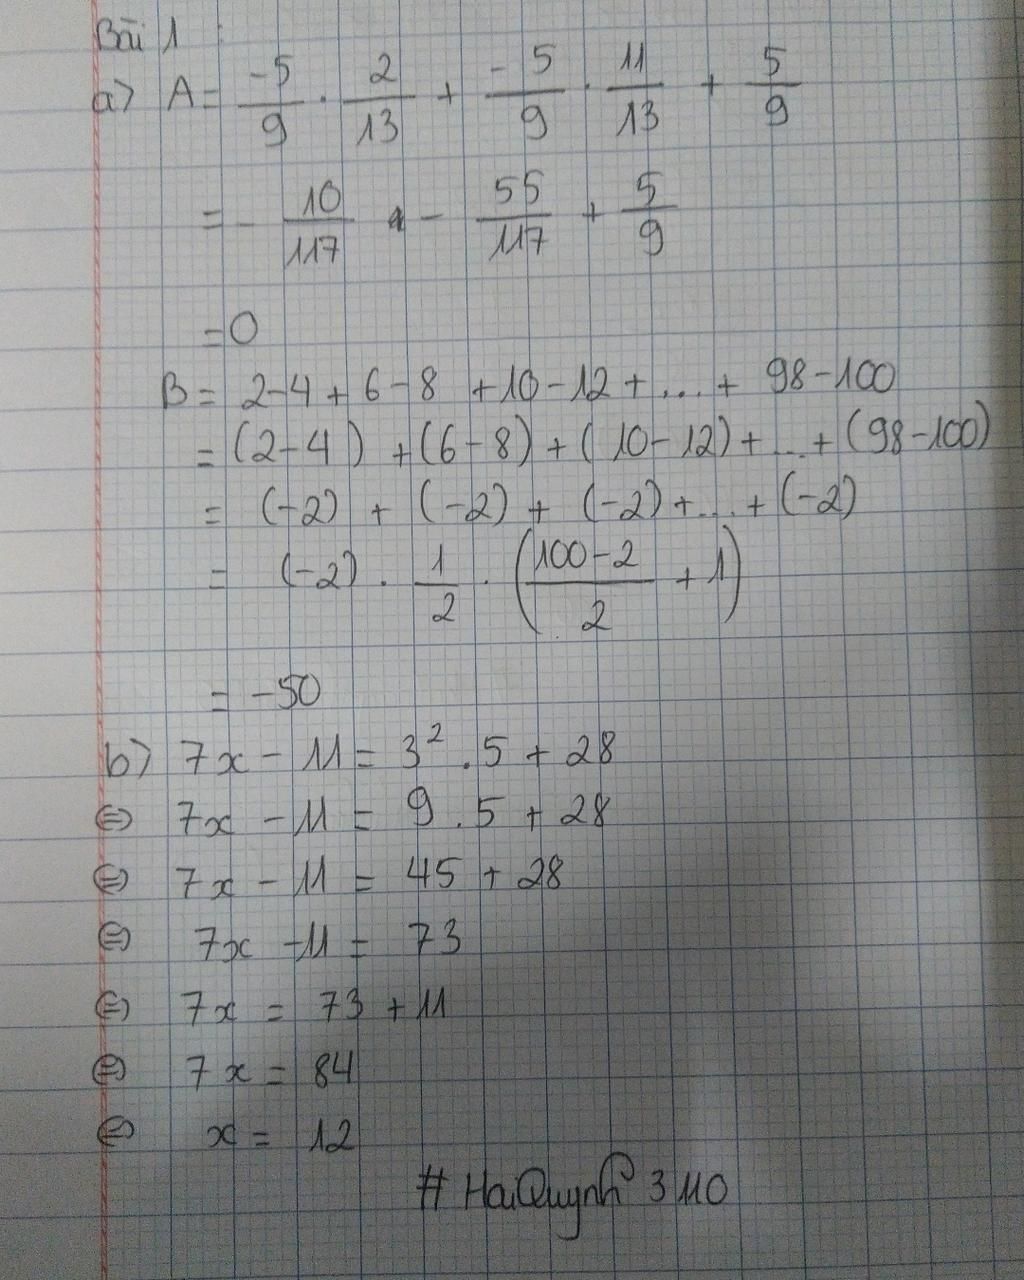 Bài 1 :
a) A = -5/9 . 2/13 + -5/9 . 11/13 + 5/9
= - 10/117 - 55/117 + 5/9
= 0
B = 2-4 + 6-8 + 10-12 + ... + 98-100
= (2-4) + (6-8) + (10-12) + ... + (98-100)
= (-2) + (-2) + (-2) + ... + (-2)
= (-2) . 1/2 . ((100-2)/2 + 1)
= -50
b) 7x - 11 = 3² . 5 + 28
⇔ 7x - 11 = 9 . 5 + 28
⇔ 7x - 11 = 45 + 28
⇔ 7x - 11 = 73
⇔ 7x = 73 + 11
⇔ 7x = 84
⇔ x = 12
# HaiQuynh 3110